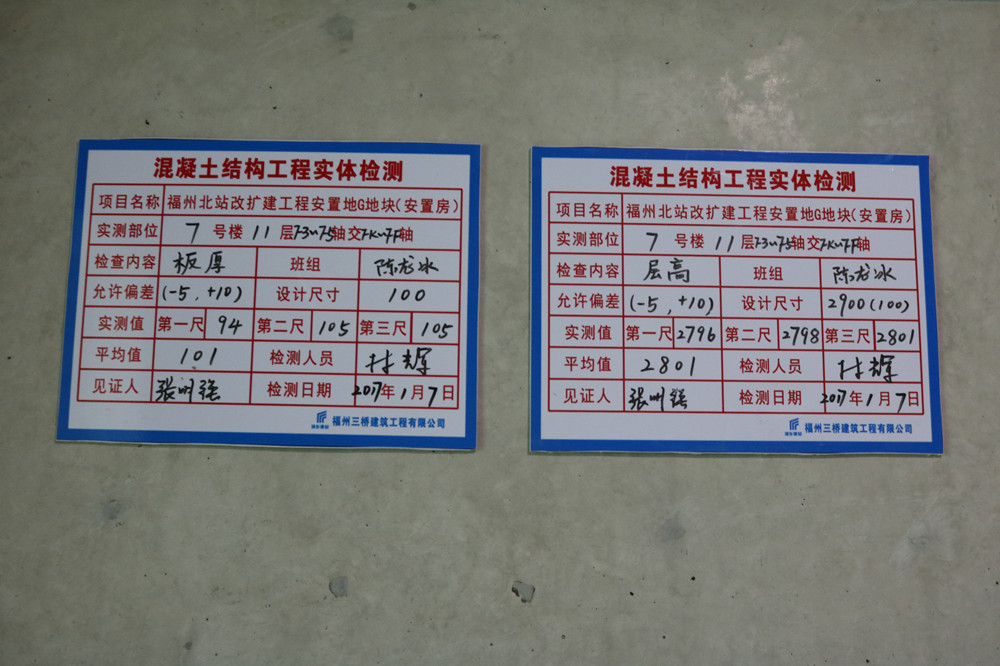 混凝土结构工程实体检测
项目名称 福州北站改扩建工程安置地G地块(安置房)
实测部位 7 号楼 11 层7-3~7-5轴交7-K~7-F轴
检查内容 板厚 班组 陈龙冰
允许偏差 (-5,+10) 设计尺寸 100
实测值 第一尺 94 第二尺 105 第三尺 105
平均值 101 检测人员
见证人 张明强 检测日期 2017年1月7日
福州三桥建筑工程有限公司
混凝土结构工程实体检测
项目名称 福州北站改扩建工程安置地G地块(安置房)
实测部位 7 号楼 11 层7-3~7-5轴交7-K~7-F轴
检查内容 层高 班组 陈龙冰
允许偏差 (-5,+10) 设计尺寸 2900(100)
实测值 第一尺 2796 第二尺 2798 第三尺 2801
平均值 2801 检测人员
见证人 张明强 检测日期 2017年1月7日
福州三桥建筑工程有限公司